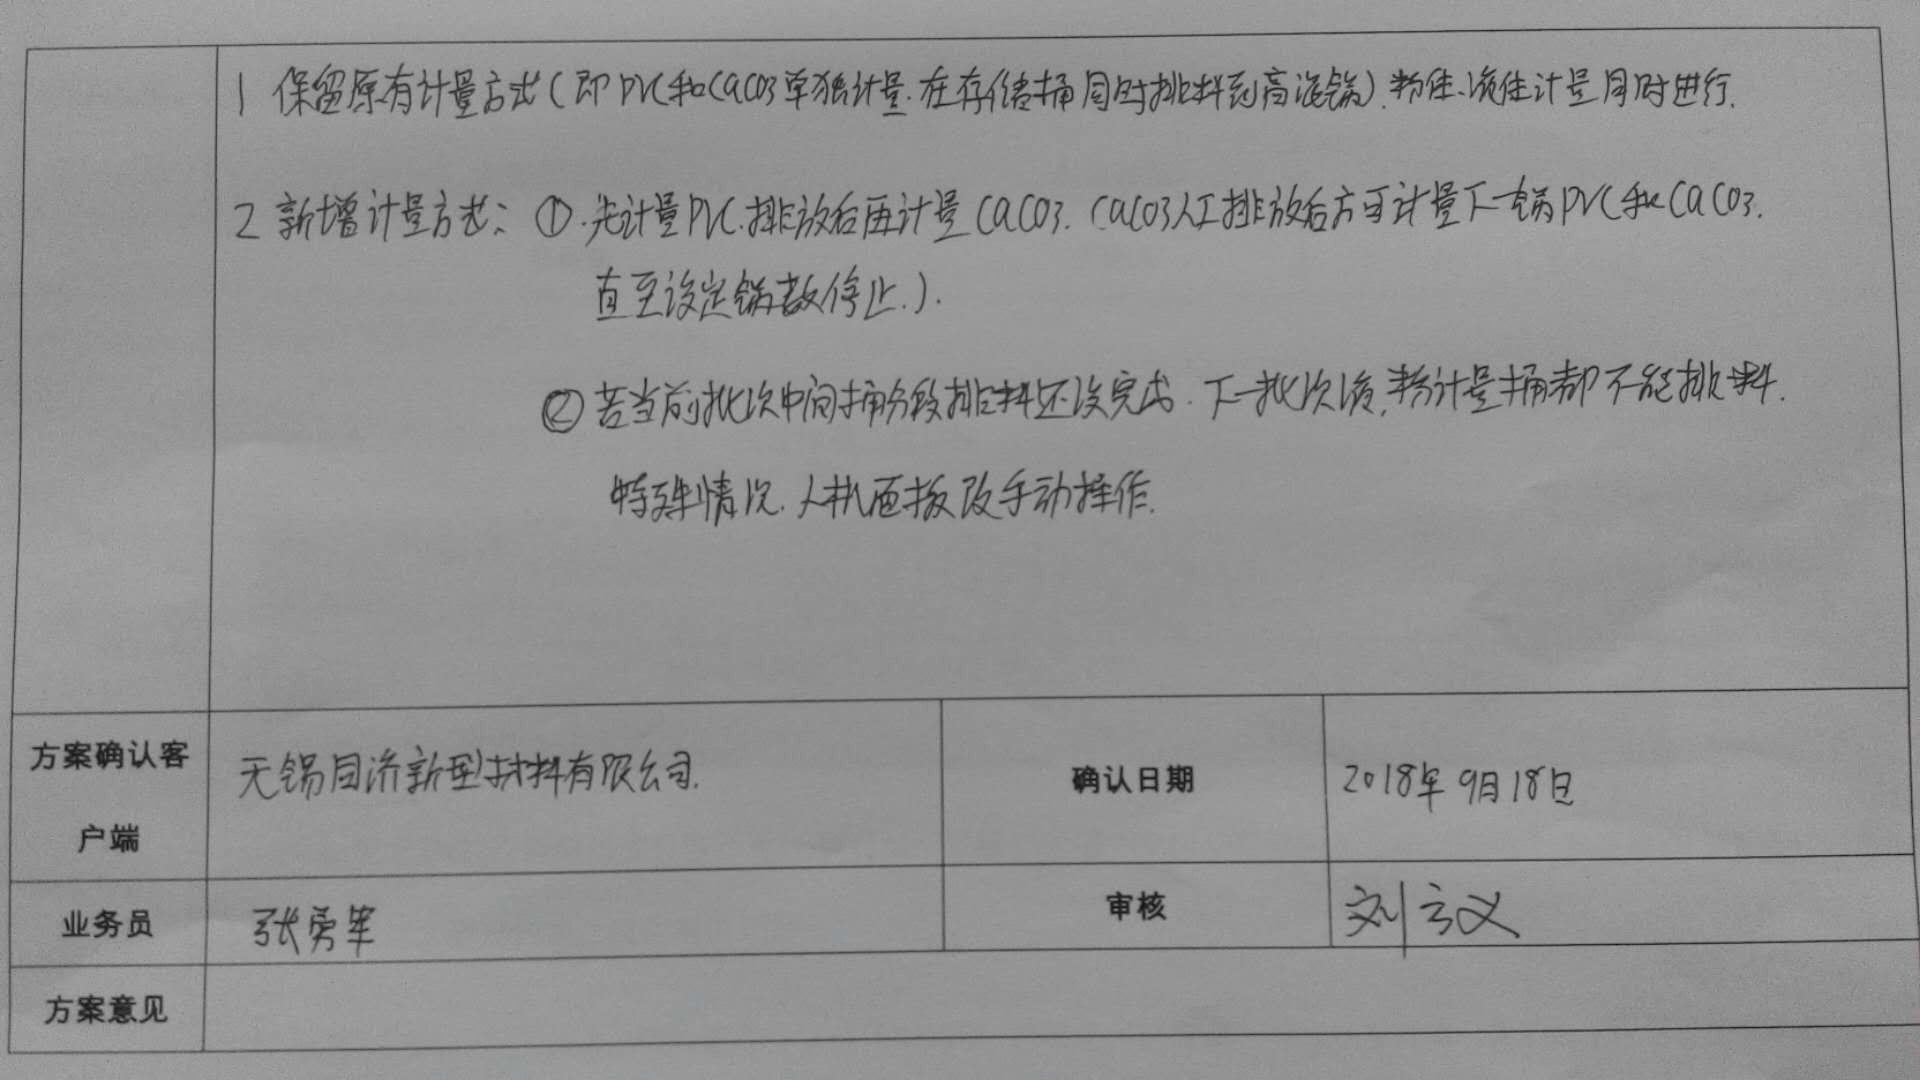 1 保留原有计量方式(即PVC和CaCO3单独计量.在存储桶同时排料到高混锅).粉体、液体计量同时进行.
2 新增计量方式: ①.先计量PVC.排放后再计量CaCO3.(CaCO3人工排放后方可计量下一锅PVC和CaCO3.
直至设定锅数停止.).
② 若当前批次中间桶分段排料还没完成.下一批次液,粉计量桶都不能排料.
特殊情况.人机面板改手动操作.
方案确认客
户端
无锡同济新型材料有限公司.
确认日期
2018年9月18日
业务员
张勇军
审核
刘
方案意见